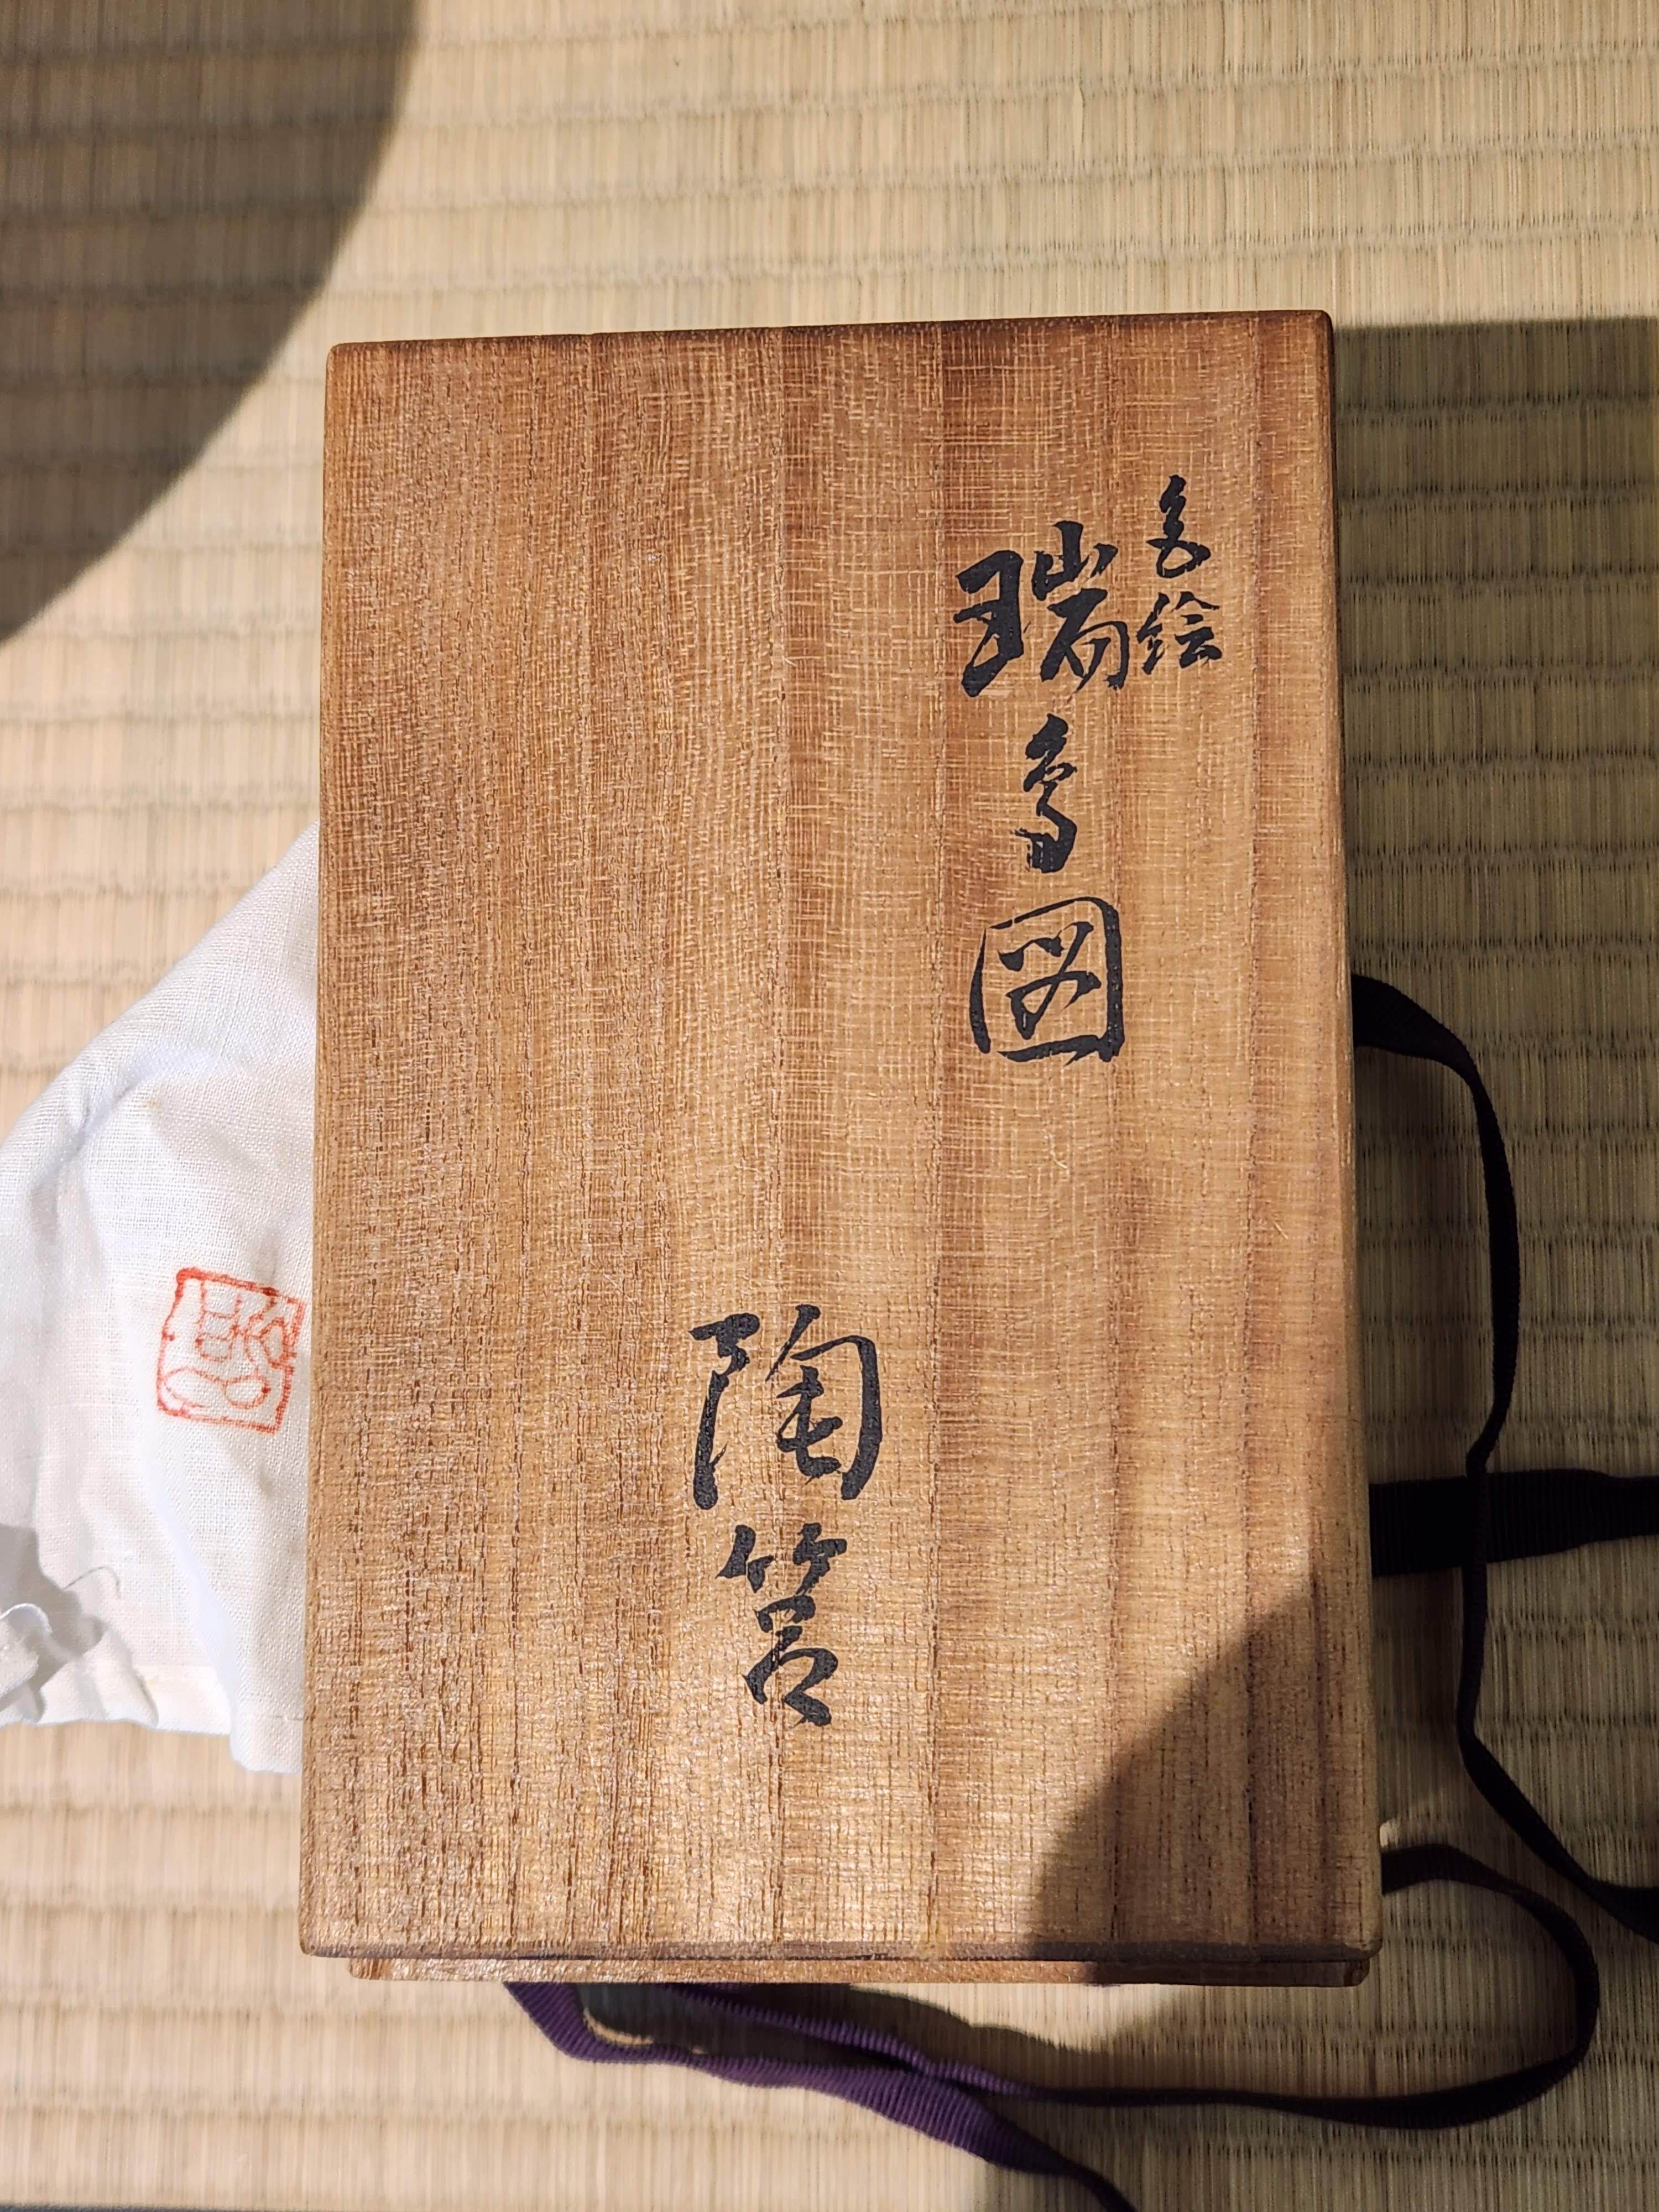 色絵
瑞鳥図
陶筥